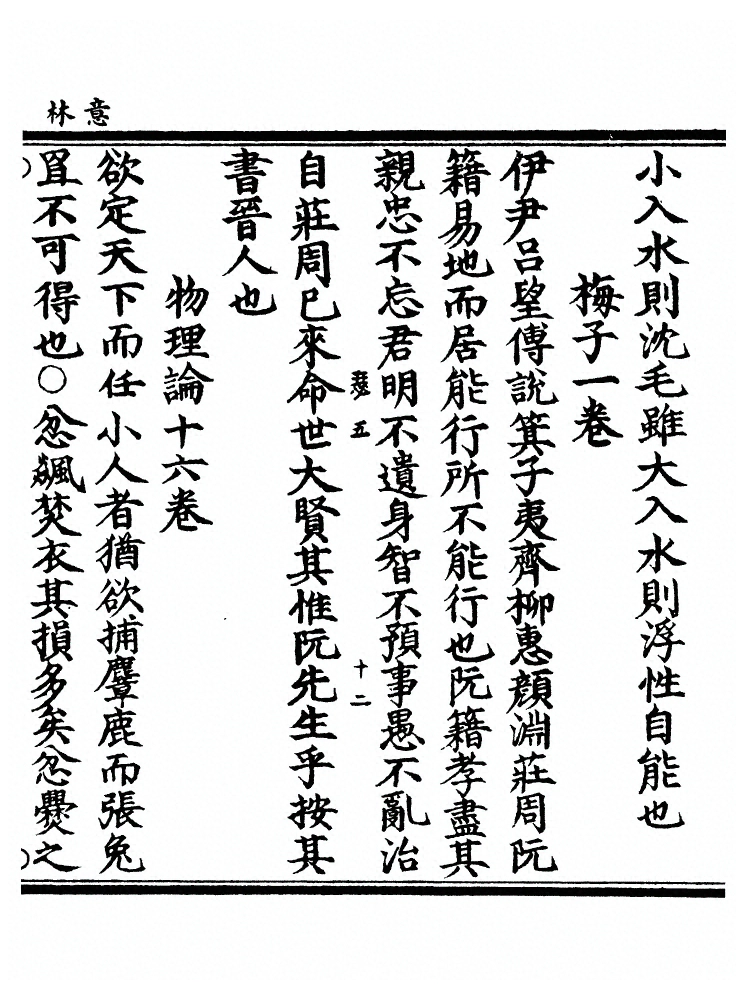 意林
小入水則沈毛雖大入水則浮性自能也
梅子一卷
伊尹呂望傅說箕子夷齊柳惠顏淵莊周阮
籍易地而居能行所不能行也阮籍孝盡其
親忠不忘君明不遺身智不預事愚不亂治
卷五
十二
自莊周已來命世大賢其惟阮先生乎按其
書晉人也
物理論十六卷
欲定天下而任小人者猶欲捕麞鹿而張兔
罝不可得也○忿飆焚衣其損多矣忿爨之